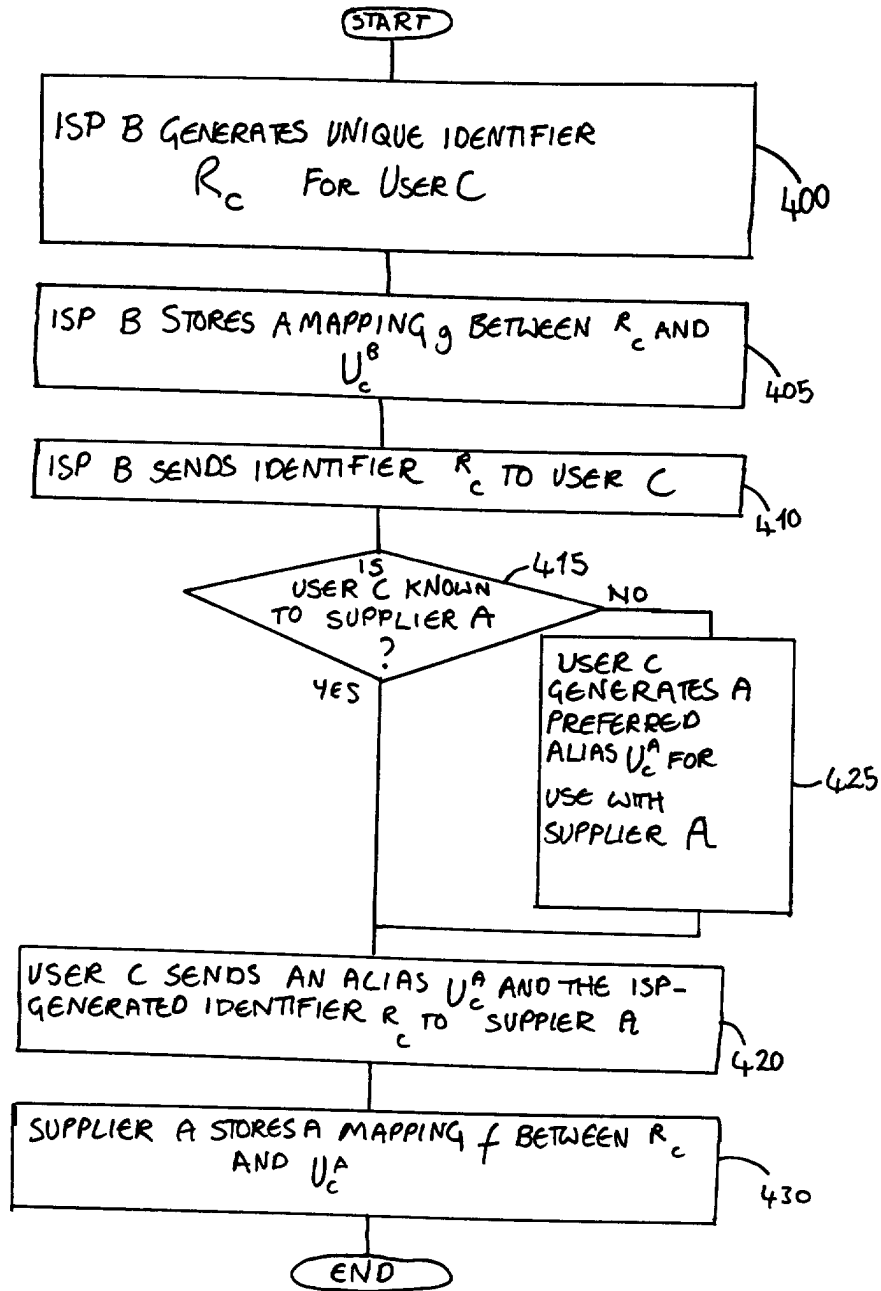 START
ISP B GENERATES UNIQUE IDENTIFIER
R_c FOR USER C
400
ISP B STORES A MAPPING g BETWEEN R_c AND
U_c^B
405
ISP B SENDS IDENTIFIER R_c TO USER C
410
IS
USER C KNOWN
TO SUPPLIER A
?
415
NO
YES
USER C
GENERATES A
PREFERRED
ALIAS U_c^A FOR
USE WITH
SUPPLIER A
425
USER C SENDS AN ALIAS U_c^A AND THE ISP-
GENERATED IDENTIFIER R_c TO SUPPIER A
420
SUPPLIER A STORES A MAPPING f BETWEEN R_c
AND U_c^A
430
END